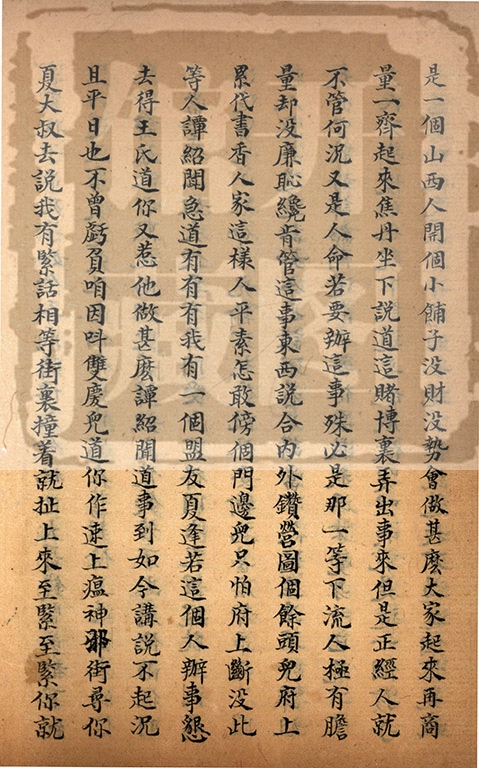 是一個山西人開個小舖子没財没勢會做甚麽大家起來再商
量一齊起來焦丹坐下說道這賭博裏弄出事來但是正經人就
不管何況又是人命若要辦這事殊必是那一等下流人極有膽
量却没廉恥纔肯管這事東西說合内外鑽營圖個餘頭兒府上
累代書香人家這樣人平素怎敢傍個門邊兒只怕府上斷没此
等人譚紹聞急道有有有我有一個盟友夏逢若這個人辦事懇
去得王氏道你又惹他做甚麽譚紹聞道事到如今講說不起況
且平日也不曾虧負咱因呌雙慶兒道你作速上瘟神邪街尋你
夏大叔去說我有緊話相等街裏撞着就扯上來至緊至緊你就